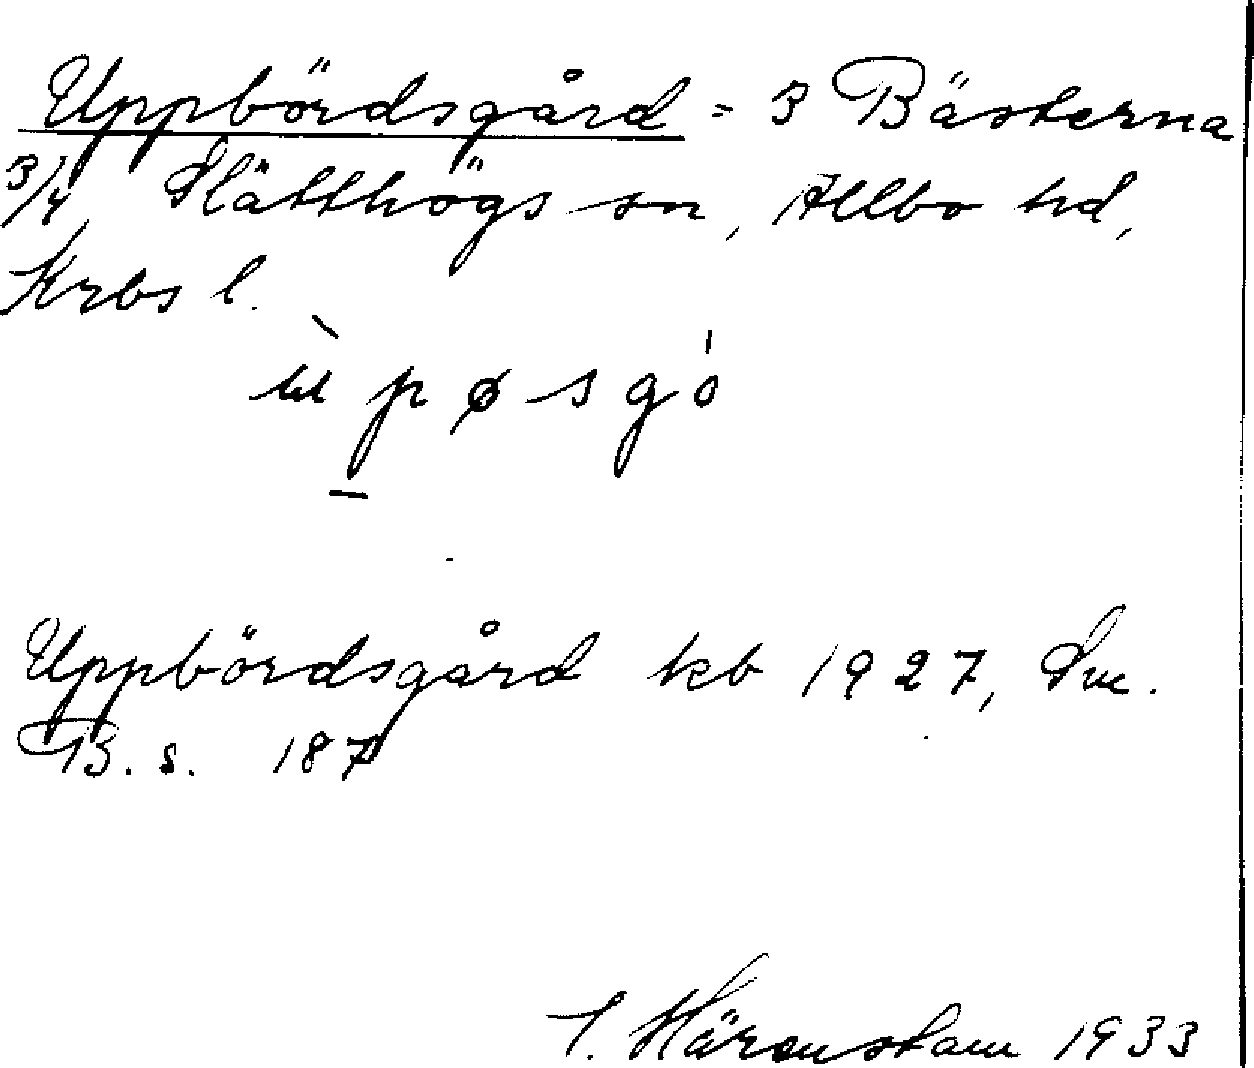 Uppbördsgård = 3 Bästerna
3/4 Slätthögs sn, Allbo hd,
Krbs l.
ùpøsgó
Uppbördsgård kb 1927, Sm.
B. s. 187
I. Härenstam 1933